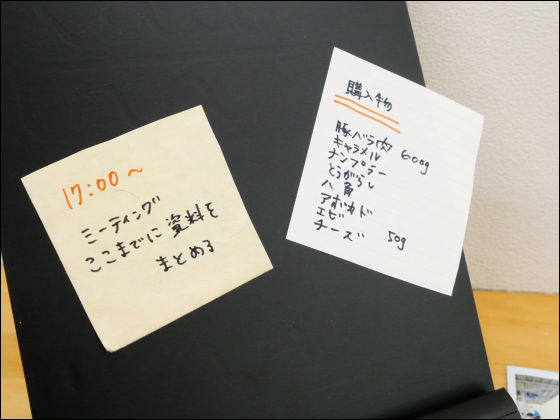 17:00〜
ミーティング
ここまでに資料を
まとめる
購入物
豚バラ肉 600g
キャラメル
ナンプラー
とうがらし
八角
アボカド
エビ
チーズ 50g